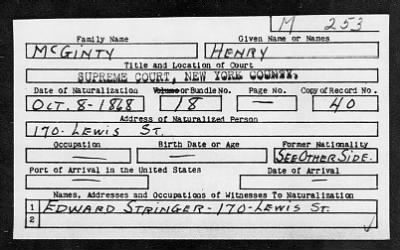 M 253
Family Name Given Name or Names
McGINTY HENRY
Title and Location of Court
SUPREME COURT, NEW YORK COUNTY.
Date of Naturalization Volume or Bundle No. Page No. Copy of Record No.
OCT. 8-1868 18 — 40
Address of Naturalized Person
170- LEWIS ST.
Occupation Birth Date or Age Former Nationality
— — SEE OTHER SIDE.
Port of Arrival in the United States Date of Arrival
— —
Names, Addresses and Occupations of Witnesses To Naturalization
1 EDWARD STRINGER-170-LEWIS ST.
2